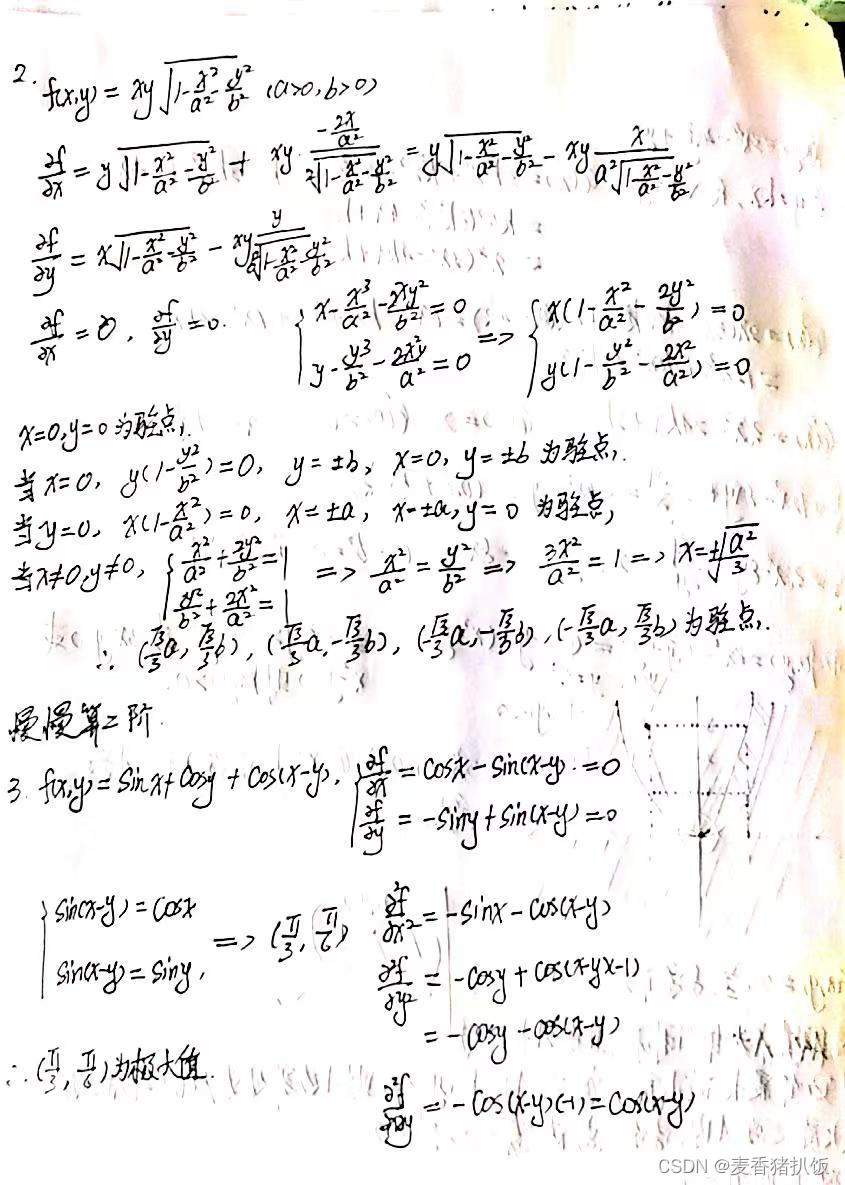 2. f(x,y) = xy√(1-x²/a²-y²/b²) (a>0, b>0)
∂f/∂x = y√(1-x²/a²-y²/b²) + xy·(-2x/a²)/(2√(1-x²/a²-y²/b²)) = y√(1-x²/a²-y²/b²) - xy x/(a²√(1-x²/a²-y²/b²))
∂f/∂y = x√(1-x²/a²-y²/b²) - xy y/(b²√(1-x²/a²-y²/b²))
∂f/∂x = 0, ∂f/∂y = 0. { x-x³/a²-2xy²/b²=0 => { x(1-x²/a²-2y²/b²)=0
y-y³/b²-2x²y/a²=0 y(1-y²/b²-2x²/a²)=0
x=0,y=0 为驻点,
当 x=0, y(1-y²/b²)=0, y=±b, x=0, y=±b 为驻点,
当 y=0, x(1-x²/a²)=0, x=±a, x=±a, y=0 为驻点,
当x≠0,y≠0, { x²/a²+2y²/b²=1 => x²/a²=y²/b² => 3x²/a²=1 => x=±√(a²/3)
y²/b²+2x²/a²=1
∴ (√3/3a, √3/3b), (√3/3a, -√3/3b), (-√3/3a, -√3/3b), (-√3/3a, √3/3b) 为驻点,
慢慢算二阶.
3. f(x,y)=sinx+cosy+cos(x-y). { ∂f/∂x = cosx-sin(x-y)=0
∂f/∂y = -siny+sin(x-y)=0
{ sin(x-y)=cosx => (π/3, π/6) ∂²f/∂x²=-sinx-cos(x-y)
sin(x-y)=siny, ∂²f/∂y² = -cosy+cos(x-y)(-1)
= -cosy-cos(x-y)
∴ (π/3, π/6) 为极大值.
∂²f/∂x∂y = -cos(x-y)(-1)=cos(x-y)
CSDN @麦香猪扒饭